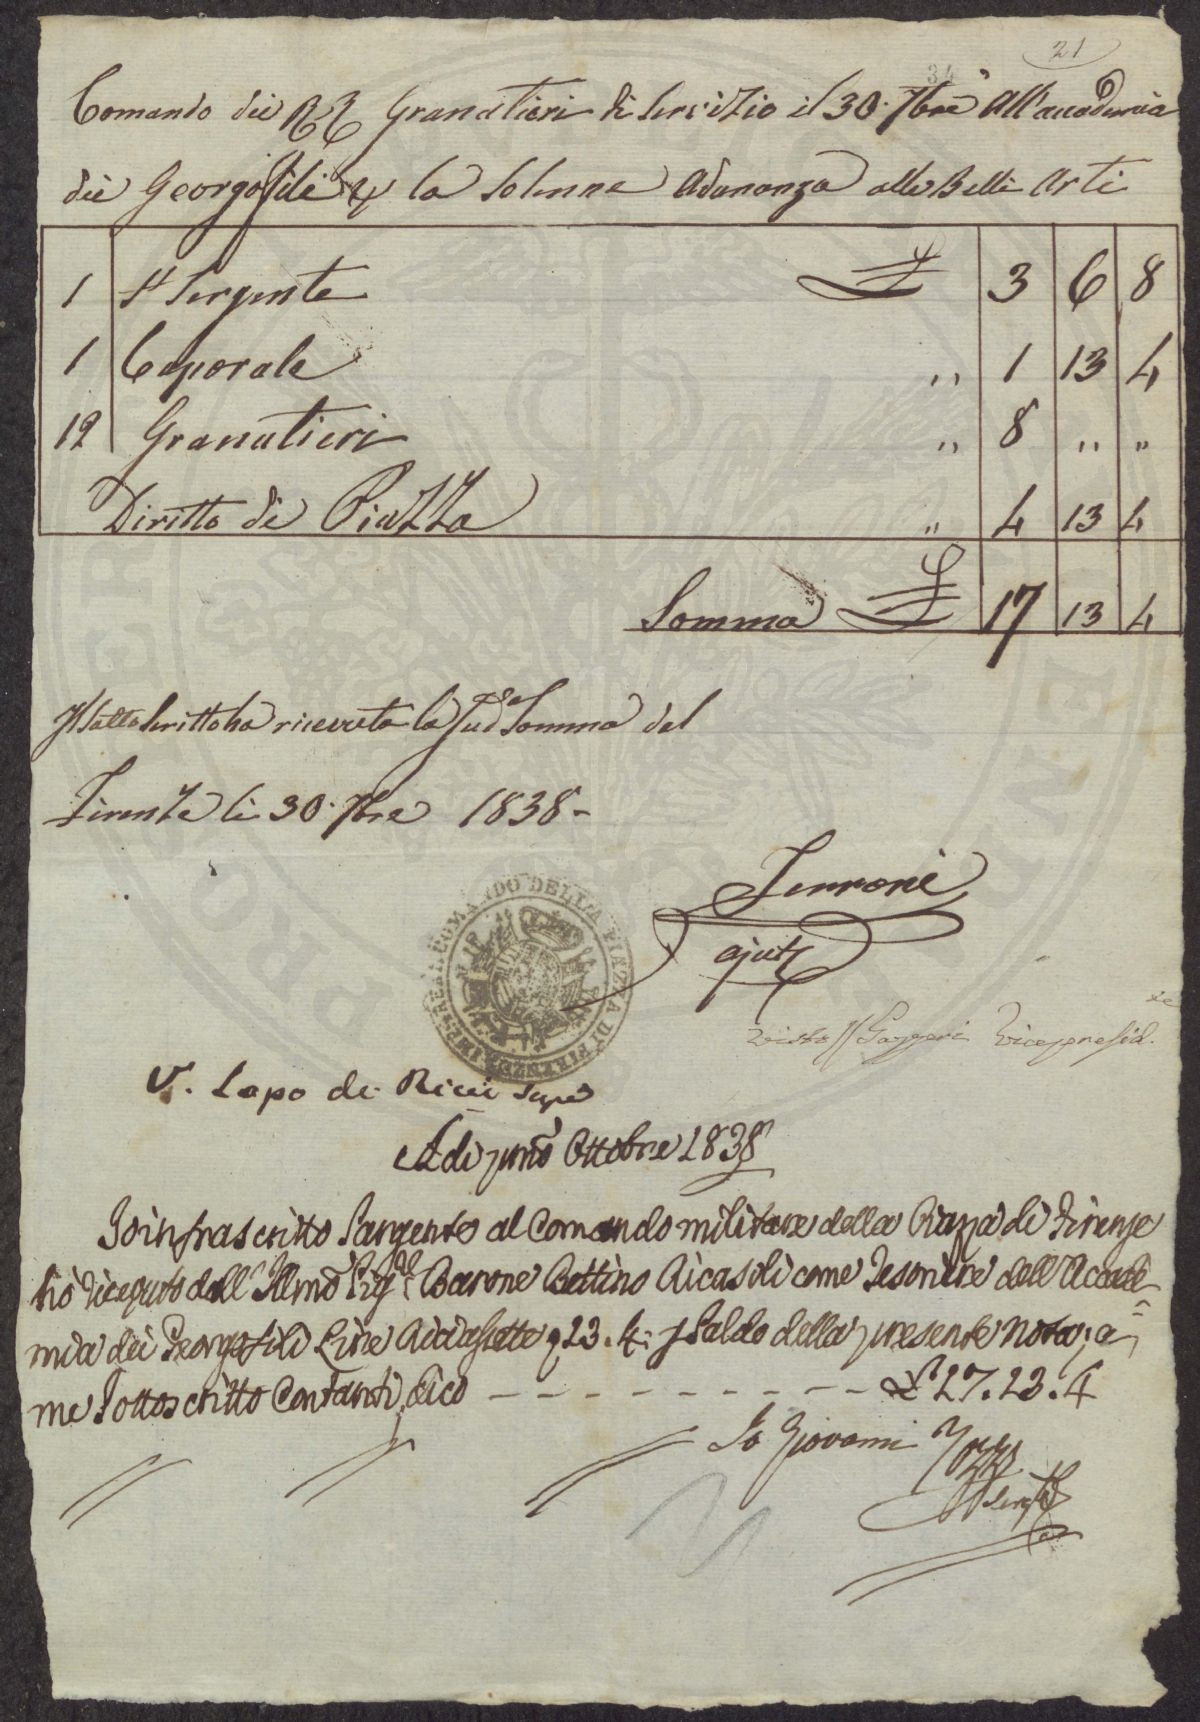 21
34
Comando dei RR Granatieri di Servizio il 30. 7bre all'accademia
dei Georgofili p la Solenne Adunanza alle Belli Arti
1 Sergente £ 3 6 8
1 Caporale " 1 13 4
12 Granatieri " 8 " "
Diritto di Piazza " 4 13 4
Somma £ 17 13 4
Il sotto scritto ha ricevuto la Sudª Somma del
Firenze li 30. 7bre 1838 -
ajut
COMANDO DELLA PIAZZA DI FIRENZE
Visto Il Gazzeri Vicepresid.te
V. Lapo de Ricci
Adi primo Ottobre 1838
Io infrascritto Sargente al Comando militare della Piazza di Firenze
hò riceputo dall' Illmo Sig.r Barone Bettino Ricasoli come Tesoriere dell'Accade=
mia dei Georgofili Lire diciasette 13. 4: p Saldo della presente nota; a
me Sottoscritto Contanti, dico - - - - - - - - - - - £ 17. 13. 4
Io Giovanni